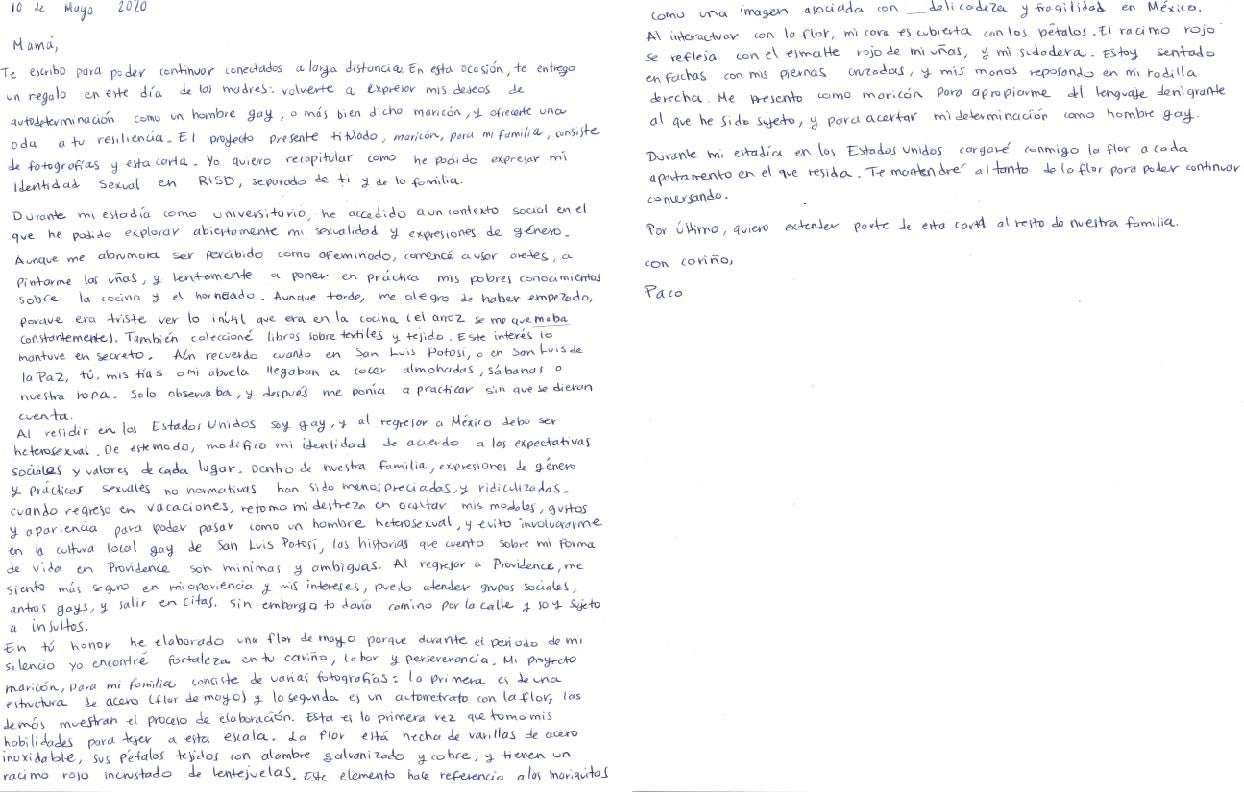 10 de Mayo 2020
Mamá,
Te escribo para poder continuar conectados a larga distancia. En esta ocasión, te entrego
un regalo en este día de las madres: volverte a expresar mis deseos de
autodeterminación como un hombre gay, o más bien dicho maricón, y ofrecerte una
oda a tu resiliencia. El proyecto presente titulado, maricón, para mi familia, consiste
de fotografías y esta carta. Yo quiero recapitular como he podido expresar mi
Identidad Sexual en RISD, separado de ti y de la familia.
Durante mi estadía como universitario, he accedido a un contexto social en el
que he podido explorar abiertamente mi sexualidad y expresiones de género.
Aunque me abrumara ser percibido como afeminado, comencé a usar aretes, a
pintarme las uñas, y lentamente a poner en práctica mis pobres conocimientos
sobre la cocina y el horneado. Aunque tarde, me alegro de haber empezado,
porque era triste ver lo inútil que era en la cocina (el arroz se me quemaba
constantemente). También coleccioné libros sobre textiles y tejido. Este interés lo
mantuve en secreto. Aún recuerdo cuando en San Luis Potosí, o en San Luis de
la Paz, tú, mis tías o mi abuela llegaban a cocer almohadas, sábanas o
nuestra ropa. Solo observaba, y después me ponía a practicar sin que se dieran
cuenta.
Al residir en los Estados Unidos soy gay, y al regresar a México debo ser
heterosexual. De este modo, modifico mi identidad de acuerdo a las expectativas
sociales y valores de cada lugar. Dentro de nuestra familia, expresiones de género
y prácticas sexuales no normativas han sido menospreciadas, y ridiculizadas.
Cuando regreso en vacaciones, retomo mi destreza en ocultar mis modales, gustos
y apariencia para poder pasar como un hombre heterosexual, y evito involucrarme
en la cultura local gay de San Luis Potosí, las historias que cuento sobre mi forma
de vida en Providence son mínimas y ambiguas. Al regresar a Providence, me
siento más seguro en mi apariencia y mis intereses, puedo atender grupos sociales,
antros gays, y salir en citas. Sin embargo todavía camino por la calle y soy sujeto
a insultos.
En tú honor he elaborado una flor de mayo porque durante el periodo de mi
silencio yo encontré fortaleza en tu cariño, labor y perseverancia. Mi proyecto
maricón, para mi familia consiste de varias fotografías: la primera es de una
estructura de acero (flor de mayo) y la segunda es un autorretrato con la flor, las
demás muestran el proceso de elaboración. Esta es la primera vez que tomo mis
habilidades para tejer a esta escala. La flor está hecha de varillas de acero
inoxidable, sus pétalos tejidos con alambre galvanizado y cobre, y tienen un
racimo rojo incrustado de lentejuelas. Este elemento hace referencia a los mariquitas
como una imagen asociada con delicadeza y fragilidad en México.
Al interactuar con la flor, mi cara es cubierta con los pétalos. El racimo rojo
se refleja con el esmalte rojo de mi uñas, y mi sudadera. Estoy sentado
en fachas con mis piernas cruzadas, y mis manos reposando en mi rodilla
derecha. Me presento como maricón para apropiarme del lenguaje denigrante
al que he sido sujeto, y para acertar mi determinación como hombre gay.
Durante mi estadía en los Estados Unidos cargaré conmigo la flor a cada
apartamento en el que resida. Te mantendré al tanto de la flor para poder continuar
conversando.
Por último, quiero extender parte de esta carta al resto de nuestra familia.
con cariño,
Paco